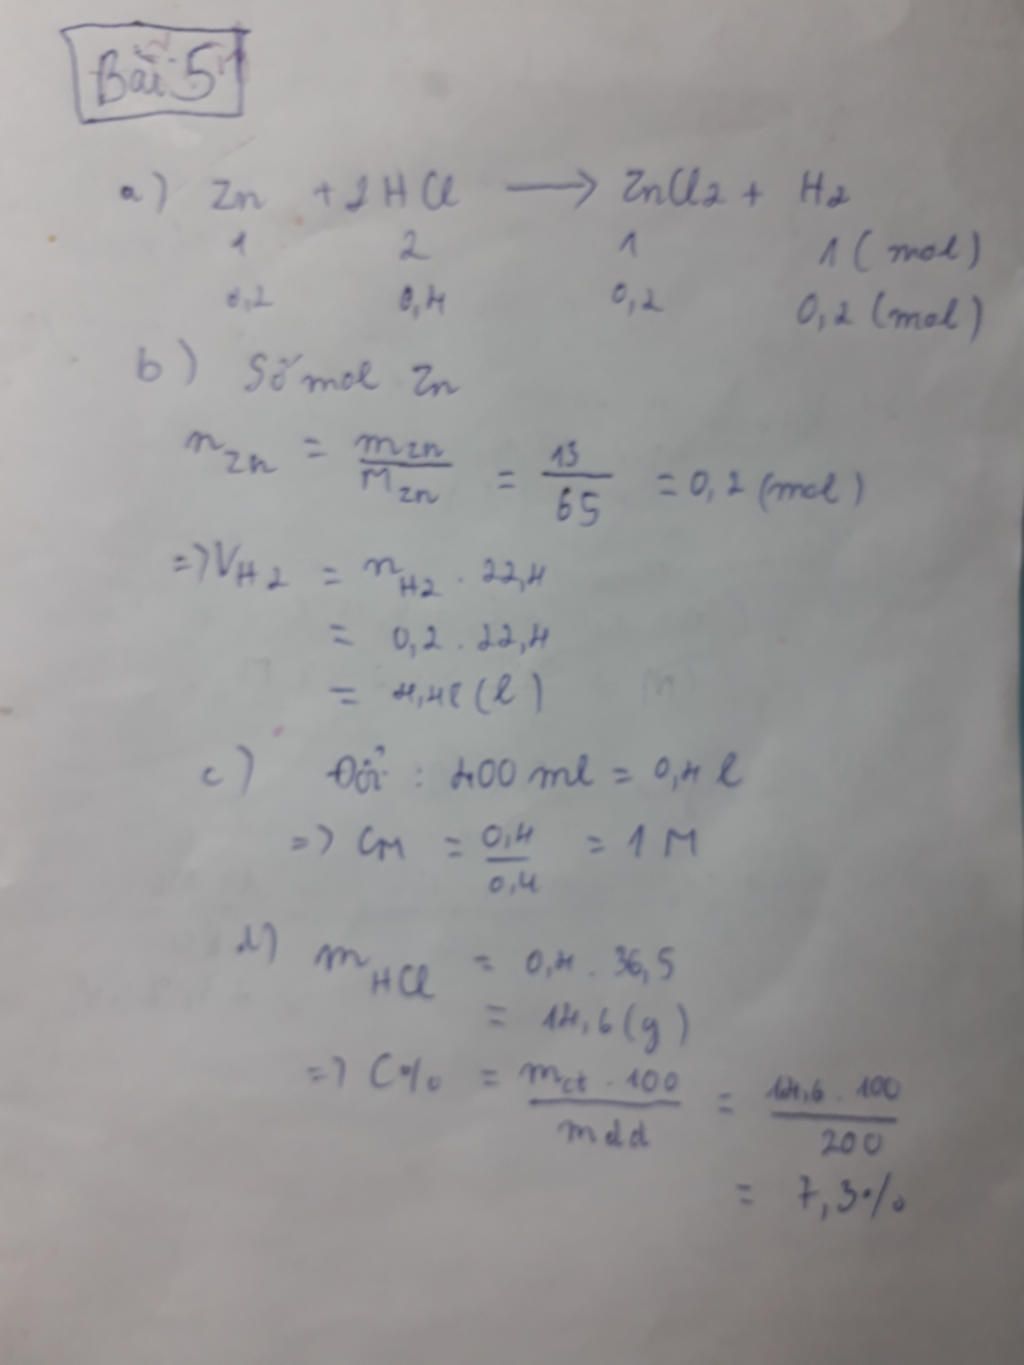 Bài 5
a) Zn + 2HCl → ZnCl2 + H2
1 2 1 1 (mol)
0,2 0,4 0,2 0,2 (mol)
b) Số mol Zn
nZn = mZn/MZn = 13/65 = 0,2 (mol)
=> VH2 = nH2 . 22,4
= 0,2 . 22,4
= 4,48 (l)
c) Đổi : 400 ml = 0,4 l
=> CM = 0,4/0,4 = 1 M
d) mHCl = 0,4 . 36,5
= 14,6 (g)
=> C% = mct . 100/mdd = 14,6 . 100/200
= 7,3%